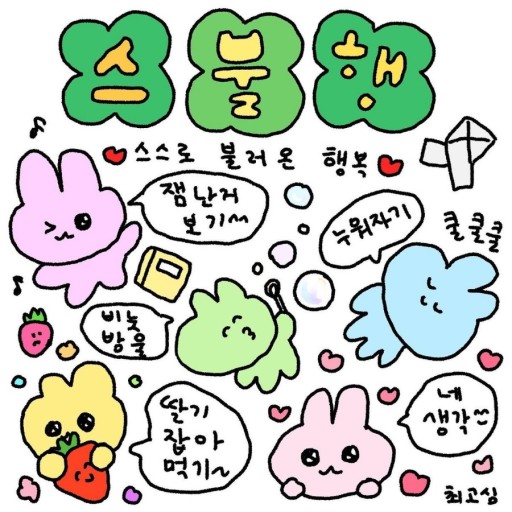 스불행
스스로 불러온 행복
잼난거
보기^^
누워자기
쿨쿨쿨
비눗
방울
딸기
잡아
먹기~
네
생각^^
최고심